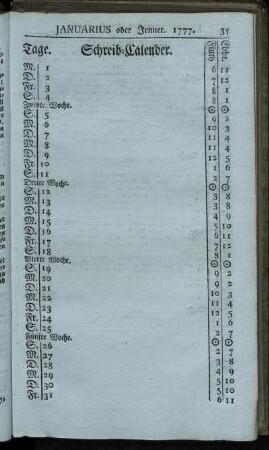 JANUARIUS oder Jenner. 1777. 35
Tage. Schreib-Calender.
M. 1 6 11
D. 2 7 12
Fr. 3 8 1
S. 4 8 1
Zweyte Woche. ☉ ☉
S. 5 9 2
M. 6 10 3
D. 7 11 4
M. 8 11 5
D. 9 12 6
Fr. 10 1 7
S. 11 2 7
Dritte Woche. ☉ ☉
S. 12 3 8
M. 13 3 8
D. 14 4 9
M. 15 5 10
D. 16 6 11
Fr. 17 7 12
S. 18 8 1
Vierte Woche. ☉ ☉
S. 19 9 2
M. 20 9 2
D. 21 10 3
M. 22 11 4
D. 23 12 5
Fr. 24 1 6
S. 25 2 7
Fünfte Woche. ☉ ☉
S. 26 2 7
M. 27 3 8
D. 28 4 9
M. 29 5 10
D. 30 5 10
Fr. 31 6 11